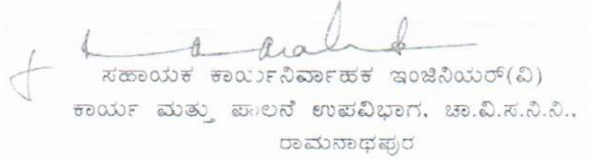 ಸಹಾಯಕ ಕಾರ್ಯನಿರ್ವಾಹಕ ಇಂಜಿನಿಯರ್(ವಿ)
ಕಾರ್ಯ ಮತ್ತು ಪಾಲನೆ ಉಪವಿಭಾಗ, ಚಾ.ವಿ.ಸ.ನಿ.ನಿ.,
ರಾಮನಾಥಪುರ